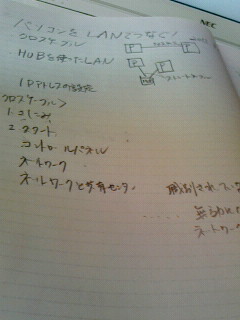 NEC
パソコンをLANでつなぐ!
クロスケーブル
P
P
HUBを使ったLAN
P
P
HUB
ストレートケーブル
IPアドレスの設定
クロスケーブル
1.
2.スタート
コントロールパネル
ネットワーク
ネットワークと共有センター
識別されていない
ネットワーク